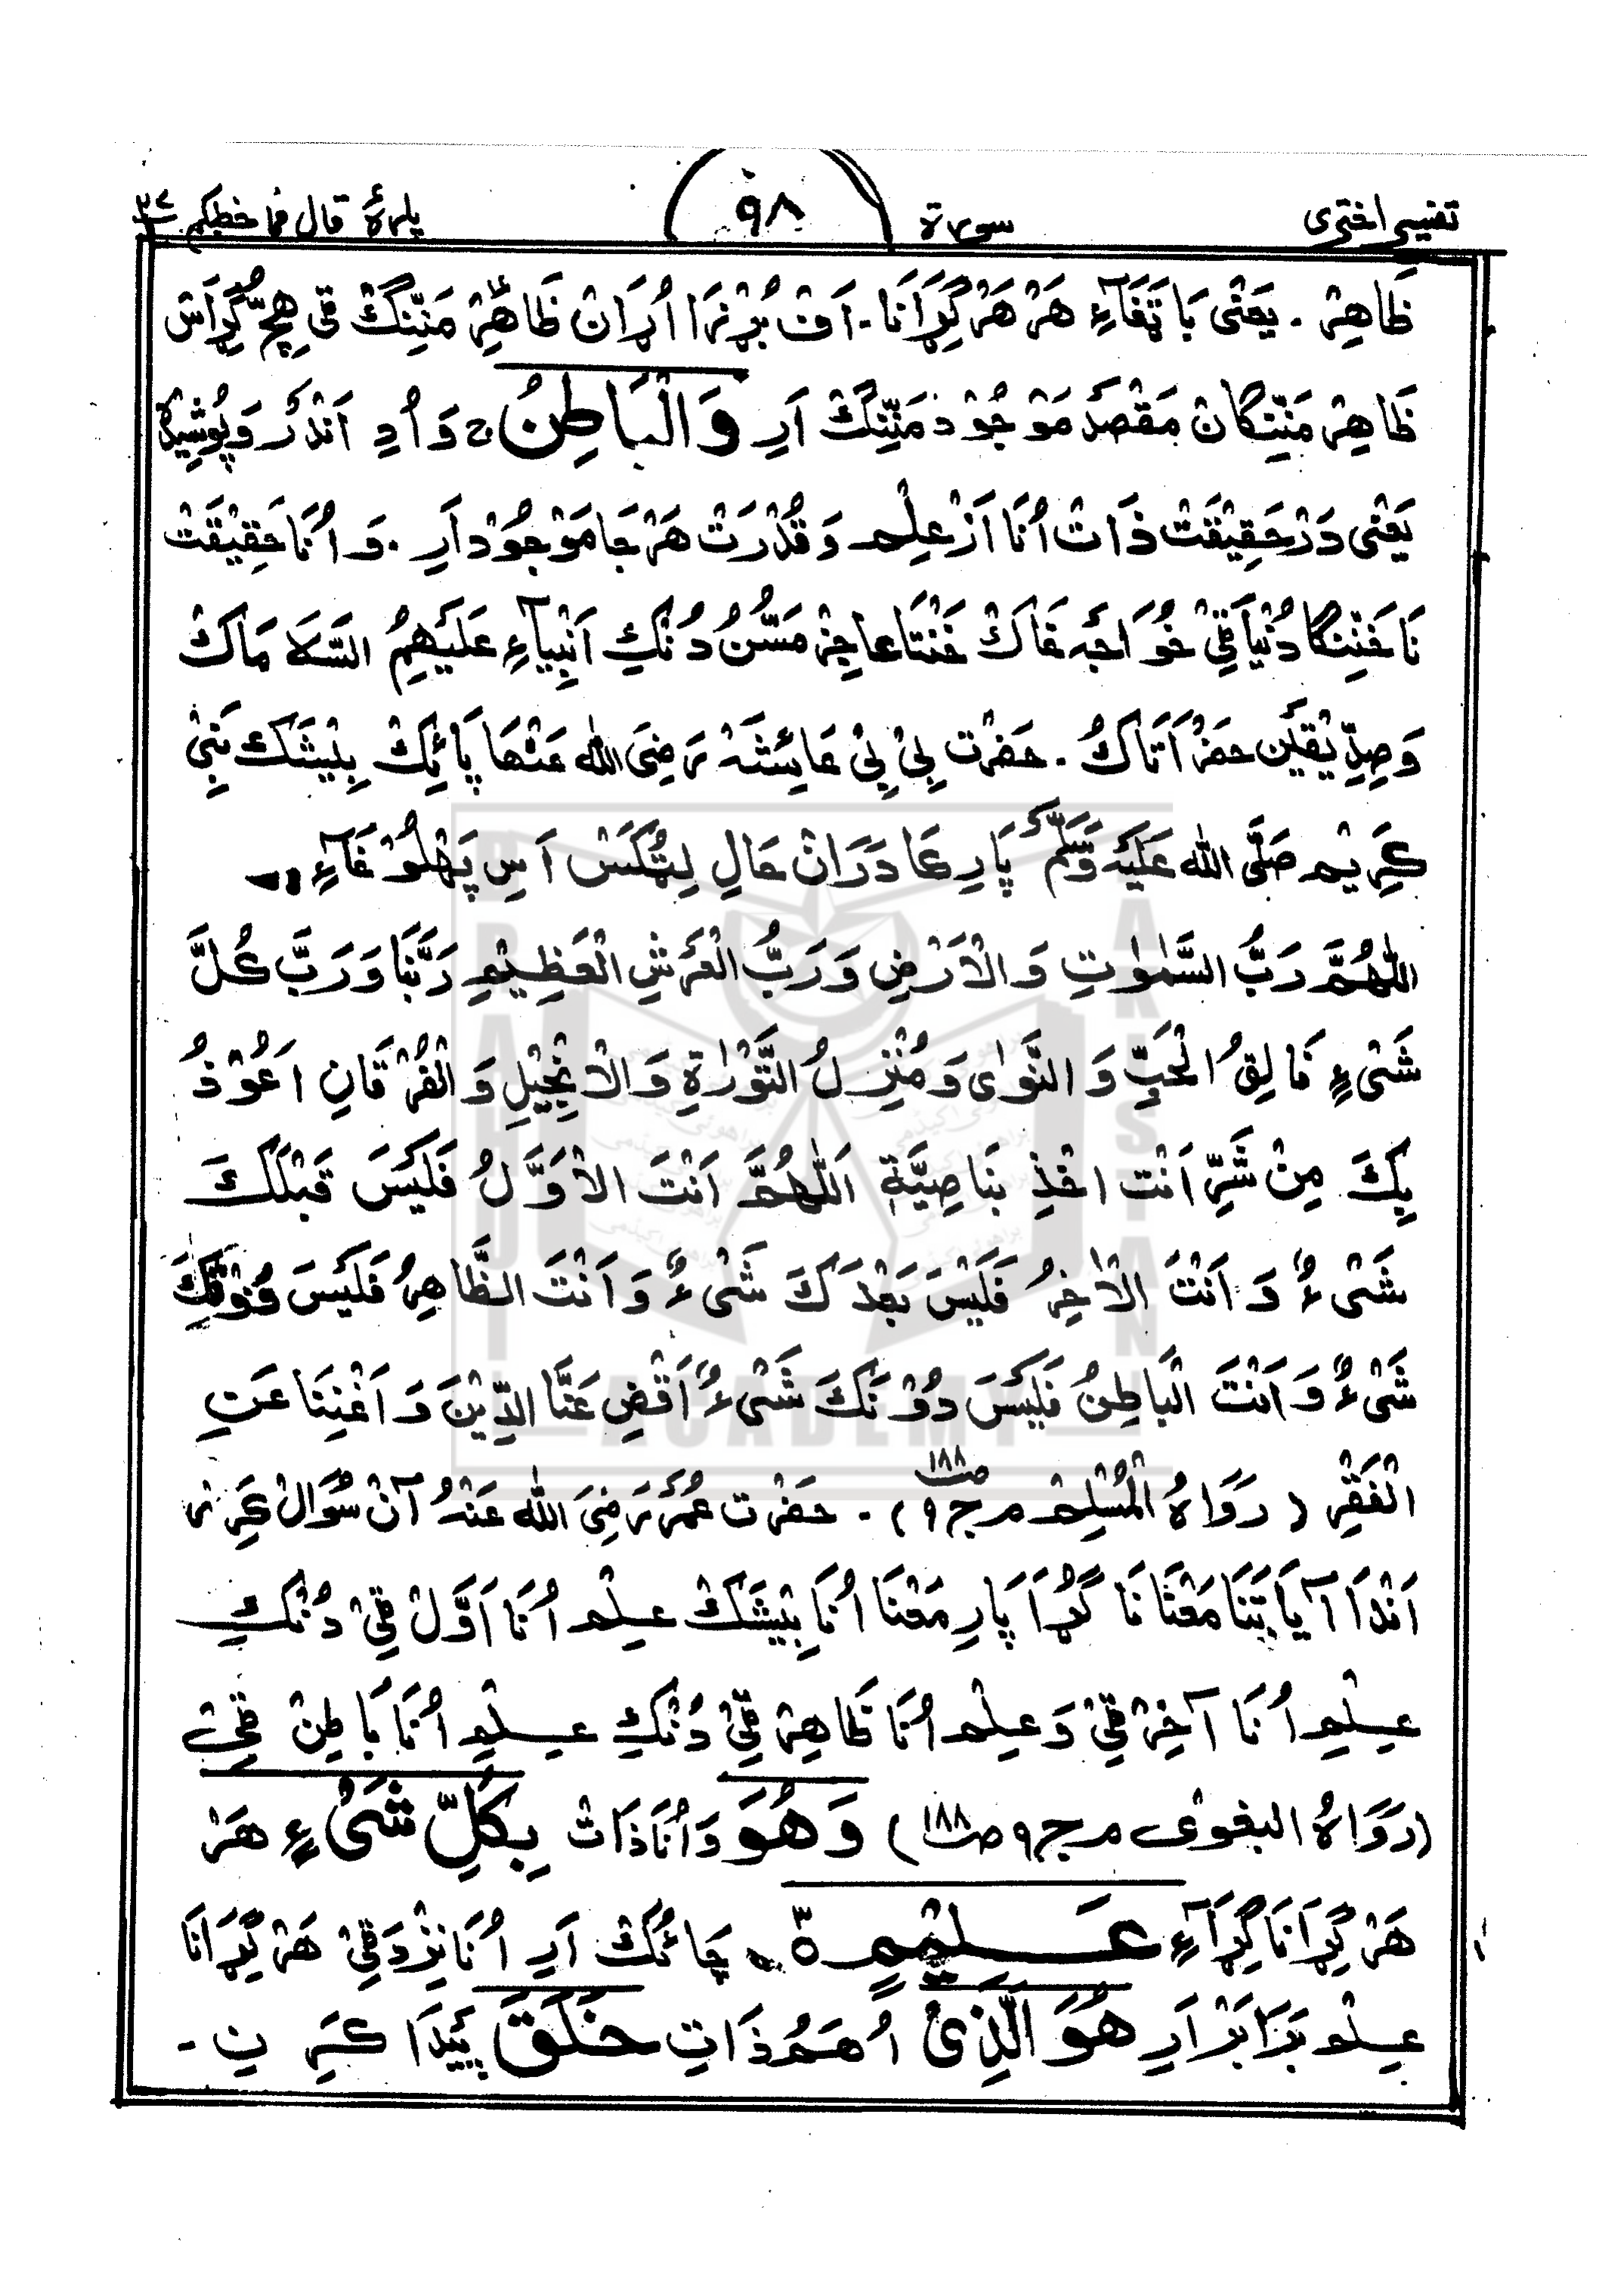 تفسیر اختری
سورة
٩٨
پارۂ قال فما خطبکم ٢٧
ظَاهِرْ . یَعْنٖی بَا تِفَآءِ هَرْ هَرْ گِڑَانَا . اَفْ بُرْزَا اُڑَانْ ظَاهِرْ مَنِّنْگْ قٖی هِچّ گِڑَاسْ
ظَاهِرْ مَنِّنْگَانْ مَقْصَدْ مَوْجُوْدْ مَنِّنْگْ اَرِ وَالْبَاطِنُ ج وَ اُدِ اَنْدَرْ وَ پُوْشِیْدَہْ
یَعْنٖی دَرْ حَقِیْقَتْ ذَاتْ اُنَا اَزْ عِلْم وَ قُدْرَتْ هَرْ جَا مَوْجُوْد اَرِ . وَ اُنَا حَقِیْقَتْ
نَا خَنِّنْگَا دُنْیَا قِیْ خُوَاجَہ غَاکْ خَنْتَا عاجِزْ مَسُّنْ دُنْکِ اَنْبِیَآءِ عَلَیْهِمُ السَّلَامَاکْ
وَصِدِّیْقِیْن حَضْرَاتَاکْ . حَضْرت بِیْ بِیْ عَائِشَہْ رَضِیَ اللہ عَنْهَا پَائِکْ بِیْشَکْ نَبِیْ
کَرِیْم صَلَّی اللہ عَلَیْہ وَسَلَّمْ پَارِ عَا دَرَانْ حَالِ لِیْتُّکَسْ اَسِ پَهْلُوْ غَآءِ
اللّٰهُمَّ رَبُّ السَّمٰوٰتِ وَ الْاَرْضِ وَ رَبُّ الْعَرْشِ الْعَظِیْمِ رَبَّنَا وَ رَبَّ کُلَّ
شَیْءٍ فَالِقُ الْحَبِّ وَ النَّوٰی وَ مُنْزِلُ التَّوْرَاةِ وَ الْاِنْجِیْلِ وَ الْفُرْقَانِ اَعُوْذُ
بِکَ مِنْ شَرِّ اَنْت اخِذِ بَنَاصِیَّةٖ اَللّٰهُمَّ اَنْتَ الْاَوَّلُ فَلَیْسَ قَبْلَکَ
شَیْءٌ وَ اَنْتَ الْاٰخِرُ فَلَیْسَ بَعْدَکَ شَیْءٌ وَ اَنْتَ الظَّاهِرُ فَلَیْسَ فَوْقَکَ
شَیْءٌ وَ اَنْتَ الْبَاطِنُ فَلَیْسَ دُوْنَکَ شَیْءٌ اَقْضِ عَنَّا الدِّیْنَ وَ اَغْنِنَا عَنِ
الْفَقْرِ ( رَوَاہُ الْمُسْلِمْ م ج ٩ صـ ١٨٨ ) . حَضْرت عُمَرْ رَضِیَ اللہ عَنْہُ آنْ سُوَالْ کَرِرْ
اَنْدَا آیَاتَنَا مَعْنَا نَا گُڑَا پَارِ مَعْنَا اُنَا بِیْشَکْ عِلْم اُنَا اَوَّلْ قِیْ دُنْکِ
عِلْمِ اُنَا آخِرْ قِیْ وَ عِلْم اُنَا ظَاهِرْ قِیْ دُنْکِ عِلْمِ اُنَا بَاطِنْ قِیْ
( رَوَاہُ البغوی م ج ٩ صـ ١٨٨ ) وَهُوَ وَ اُنَا ذَاتْ بِکُلِّ شَیْءٍ هَرْ
هَرْ گِڑَانَا گِڑَآءِ عَلِیْمٌ ہ چَائُنْکْ اَرِ اُنَا نِزْدَقِیْ هَرْ گِڑَانَا
عِلْم بَرَابَرْ اَرِ هُوَ الَّذِیْ اُ هَمُ ذَاتِ خَلَقَ پَیْدَا کَرِ نِ -
BRAHUI ACADEMY PAKISTAN